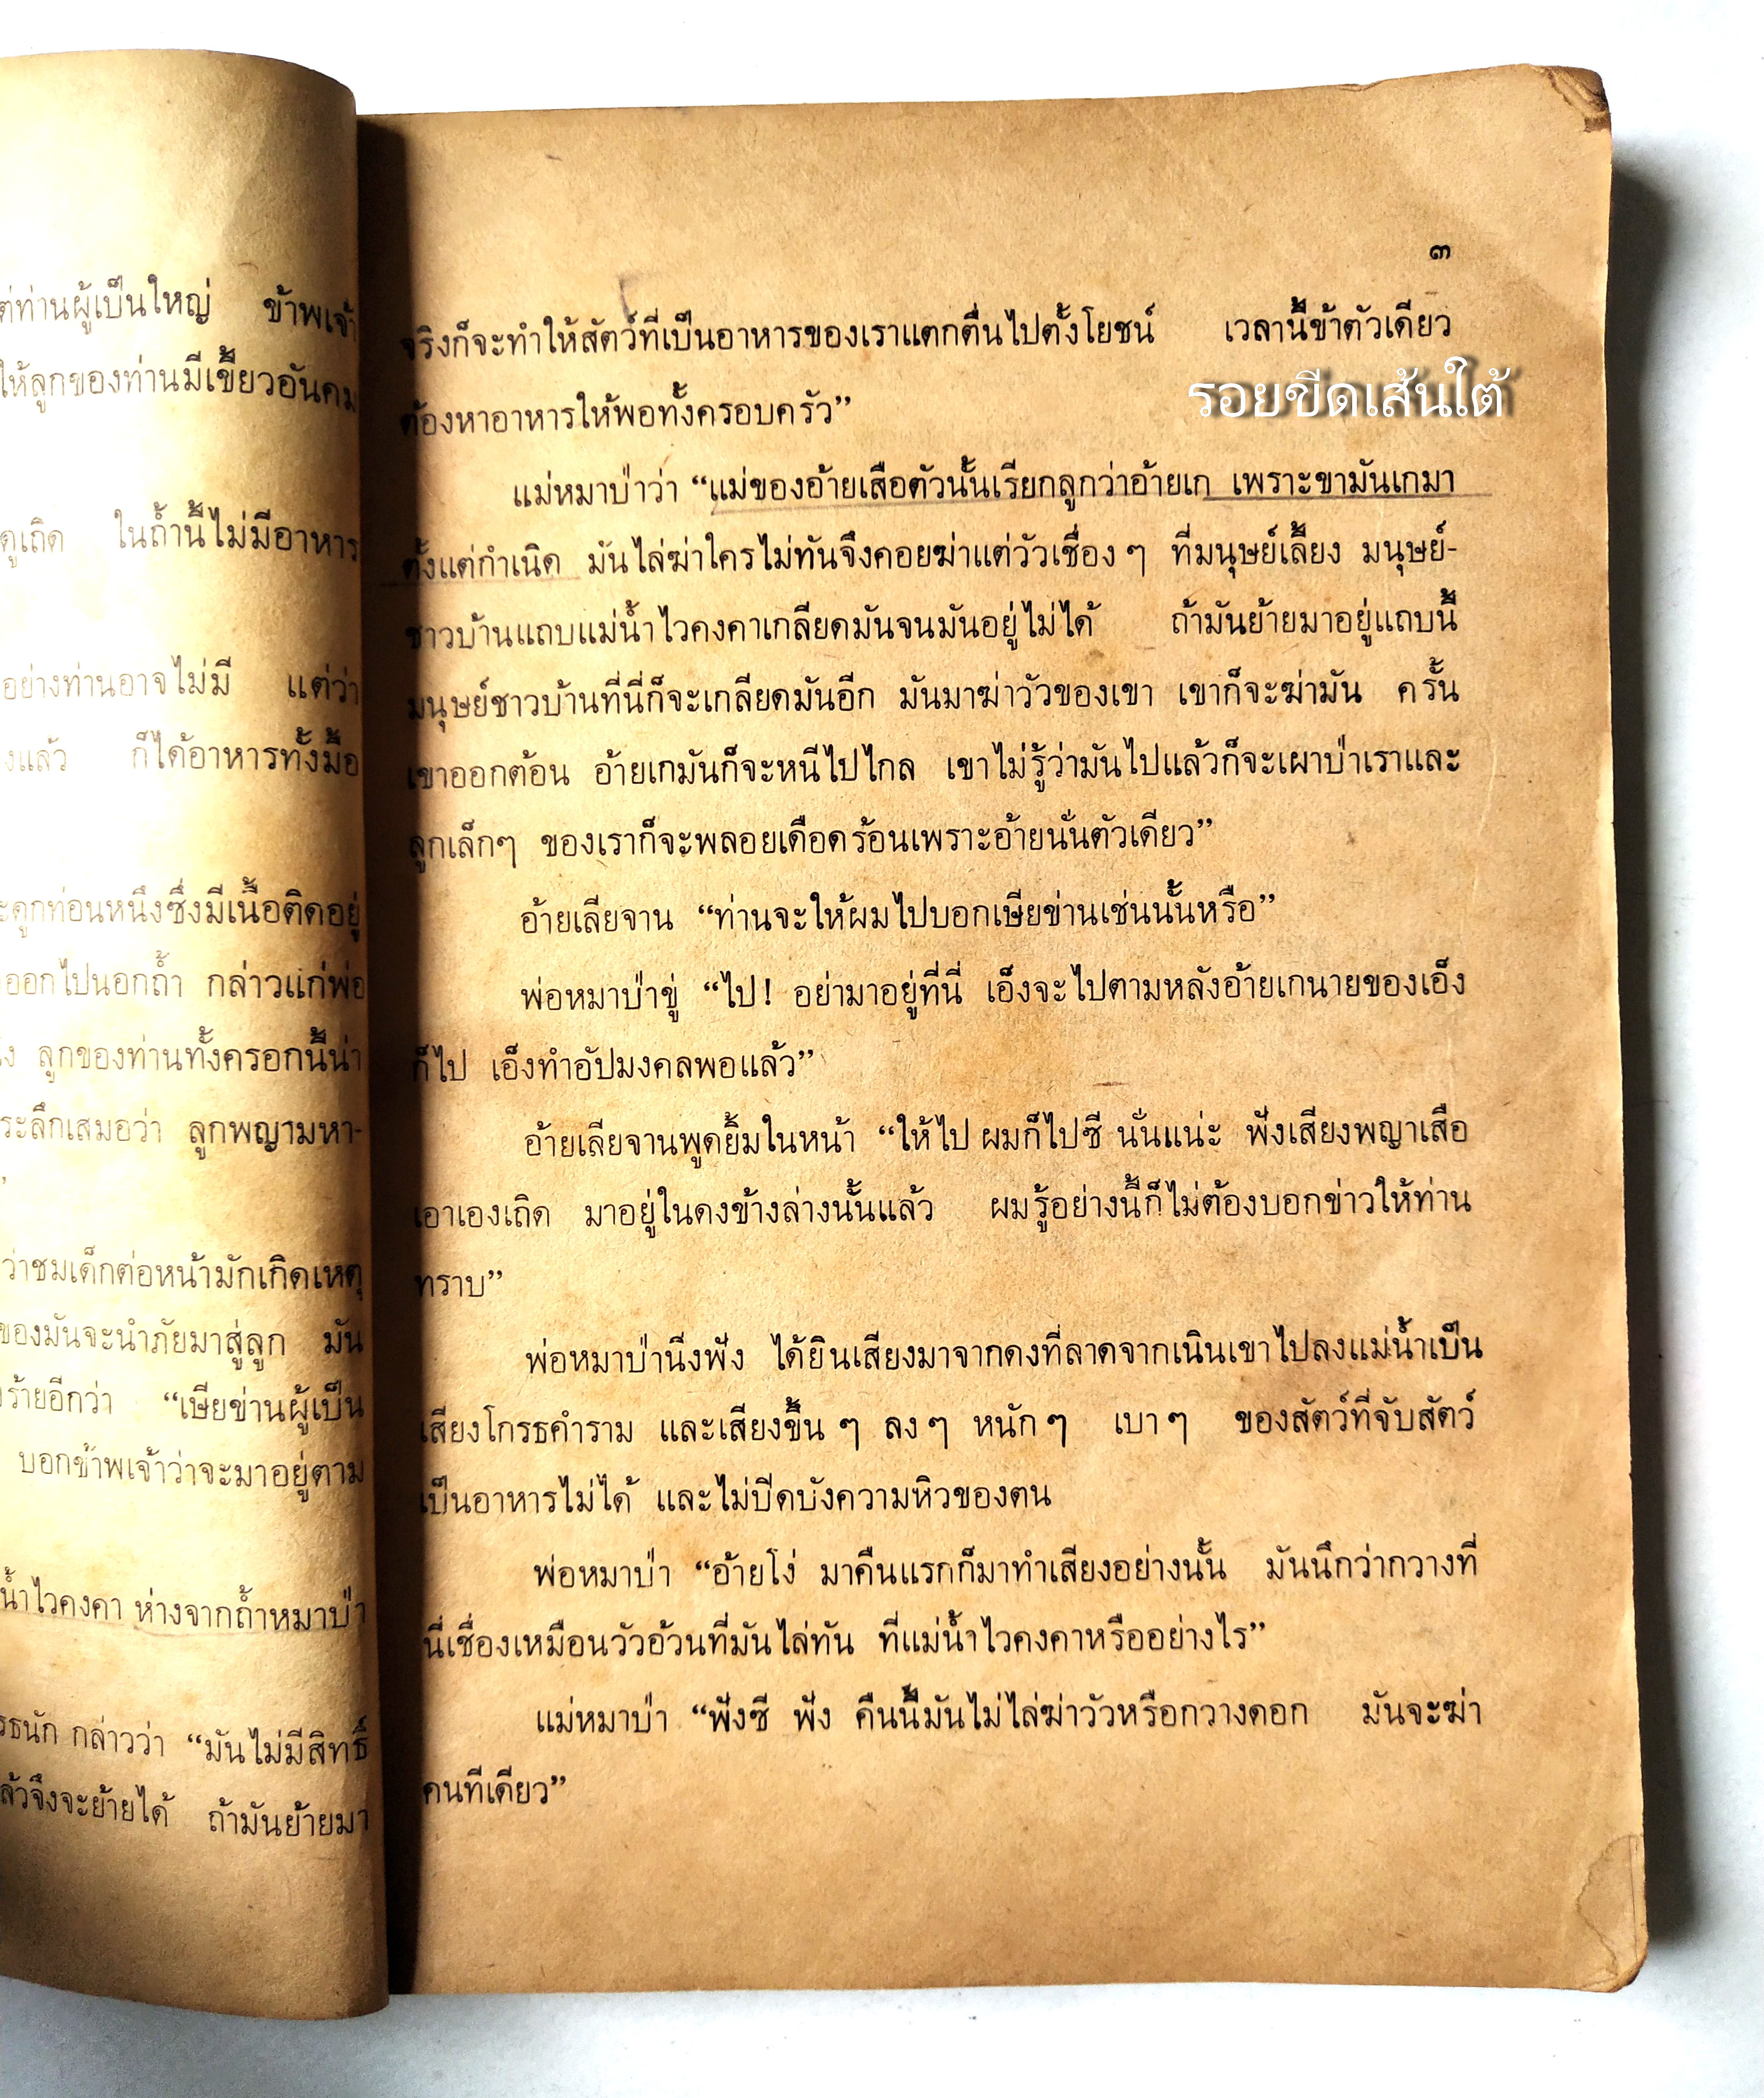 ต่ท่านผู้เป็นใหญ่ ข้าพเจ้า
ให้ลูกของท่านมีเขี้ยวอันคม
ดูเถิด ในถ้ำนี้ไม่มีอาหาร
อย่างท่านอาจไม่มี แต่ว่า
งแล้ว ก็ได้อาหารทั้งมื้อ
ะดูกท่อนหนึ่งซึ่งมีเนื้อติดอยู่
ออกไปนอกถ้ำ กล่าวแก่พ่อ
ง ลูกของท่านทั้งครอกนี้น่า
ระลึกเสมอว่า ลูกพญามหา-
”
ว่าชมเด็กต่อหน้ามักเกิดเหตุ
ของมันจะนำภัยมาสู่ลูก มัน
งร้ายอีกว่า “เษียข่านผู้เป็น
บอกข้าพเจ้าว่าจะมาอยู่ตาม
น้ำไวคงคา ห่างจากถ้ำหมาป่า
รธนัก กล่าวว่า “มันไม่มีสิทธิ์
ล้วจึงจะย้ายได้ ถ้ามันย้ายมา
๓
จริงก็จะทำให้สัตว์ที่เป็นอาหารของเราแตกตื่นไปตั้งโยชน์ เวลานี้ข้าตัวเดียว
รอยขีดเส้นใต้
ต้องหาอาหารให้พอทั้งครอบครัว”
แม่หมาป่าว่า “แม่ของอ้ายเสือตัวนั้นเรียกลูกว่าอ้ายเก เพราะขามันเกมา
ตั้งแต่กำเนิด มันไล่ฆ่าใครไม่ทันจึงคอยฆ่าแต่วัวเชื่อง ๆ ที่มนุษย์เลี้ยง มนุษย์-
ชาวบ้านแถบแม่น้ำไวคงคาเกลียดมันจนมันอยู่ไม่ได้ ถ้ามันย้ายมาอยู่แถบนี้
มนุษย์ชาวบ้านที่นี่ก็จะเกลียดมันอีก มันมาฆ่าวัวของเขา เขาก็จะฆ่ามัน ครั้น
เขาออกต้อน อ้ายเกมันก็จะหนีไปไกล เขาไม่รู้ว่ามันไปแล้วก็จะเผาป่าเราและ
ลูกเล็กๆ ของเราก็จะพลอยเดือดร้อนเพราะอ้ายนั่นตัวเดียว”
อ้ายเลียจาน “ท่านจะให้ผมไปบอกเษียข่านเช่นนั้นหรือ”
พ่อหมาป่าขู่ “ไป! อย่ามาอยู่ที่นี่ เอ็งจะไปตามหลังอ้ายเกนายของเอ็ง
ก็ไป เอ็งทำอัปมงคลพอแล้ว”
อ้ายเลียจานพูดยิ้มในหน้า “ให้ไป ผมก็ไปซี นั่นแน่ะ ฟังเสียงพญาเสือ
เอาเองเถิด มาอยู่ในดงข้างล่างนั้นแล้ว ผมรู้อย่างนี้ก็ไม่ต้องบอกข่าวให้ท่าน
ทราบ”
พ่อหมาป่านิ่งฟัง ได้ยินเสียงมาจากดงที่ลาดจากเนินเขาไปลงแม่น้ำเป็น
เสียงโกรธคำราม และเสียงขึ้น ๆ ลง ๆ หนัก ๆ เบา ๆ ของสัตว์ที่จับสัตว์
เป็นอาหารไม่ได้ และไม่ปิดบังความหิวของตน
พ่อหมาป่า “อ้ายโง่ มาคืนแรกก็มาทำเสียงอย่างนั้น มันนึกว่ากวางที่
นี่เชื่องเหมือนวัวอ้วนที่มันไล่ทัน ที่แม่น้ำไวคงคาหรืออย่างไร”
แม่หมาป่า “ฟังซี ฟัง คืนนี้มันไม่ไล่ฆ่าวัวหรือกวางดอก มันจะฆ่า
คนทีเดียว”